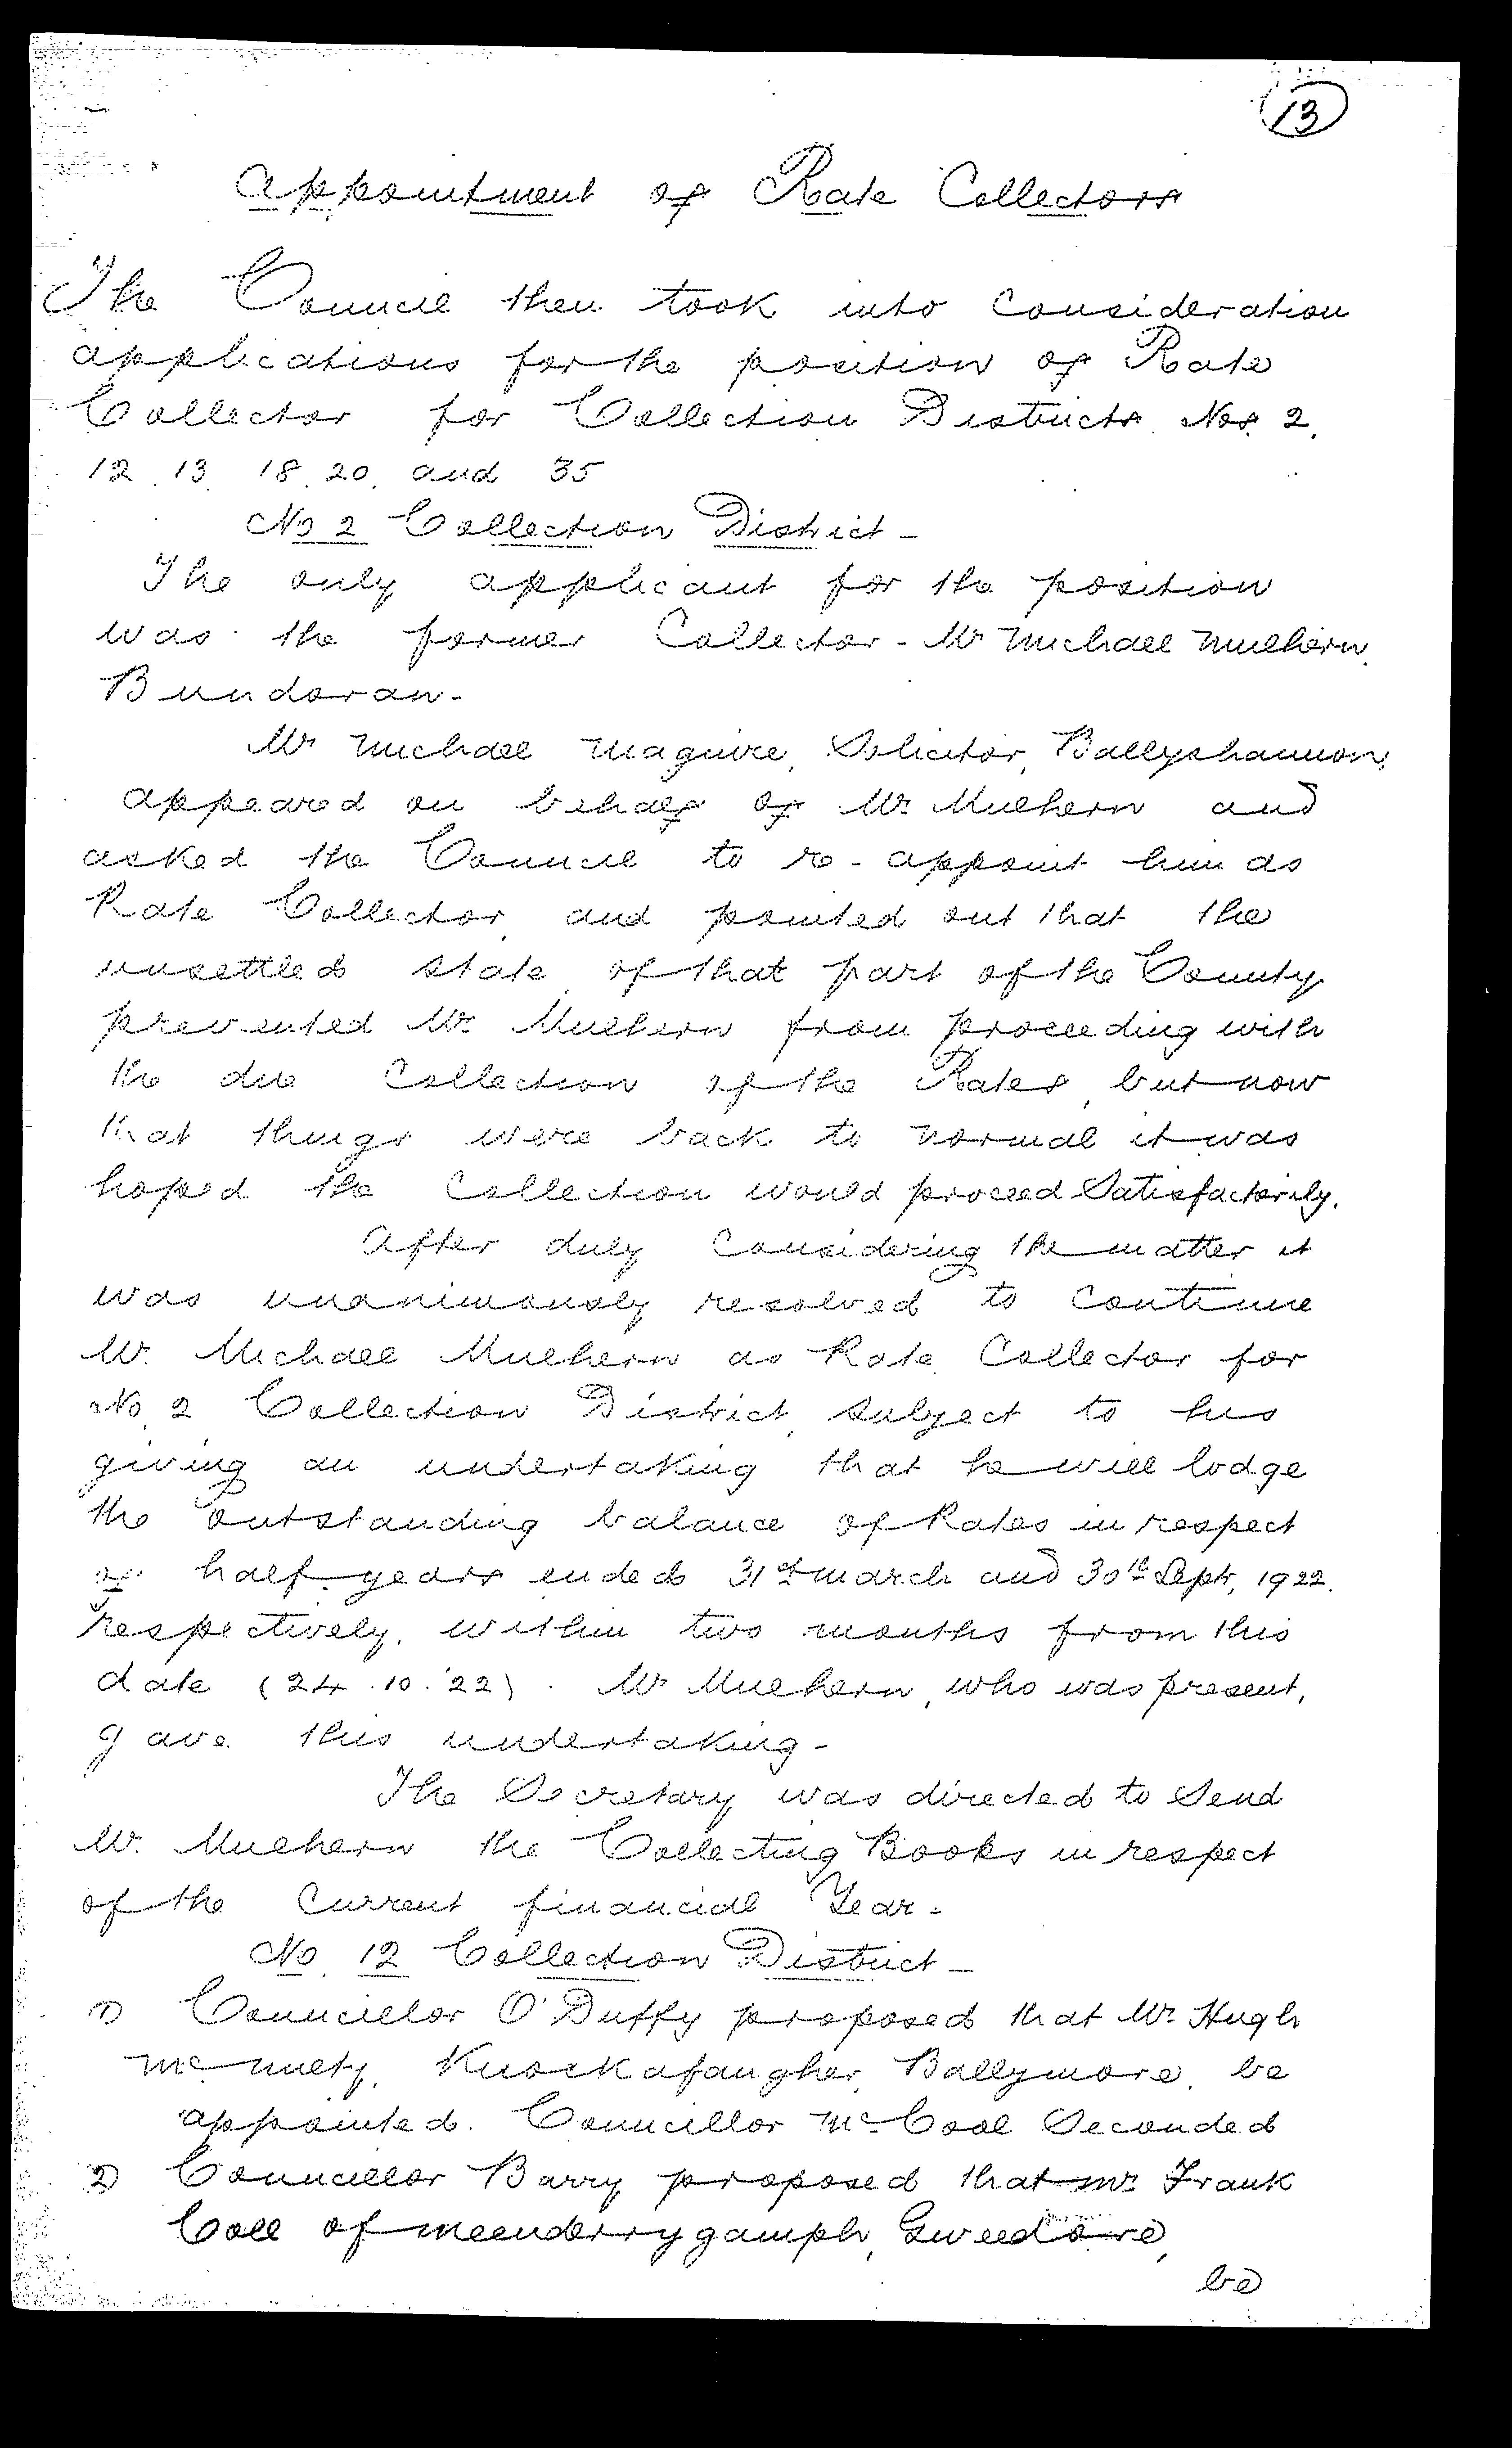 13
Appointment of Rate Collectors
The Council then took into consideration
applications for the position of Rate
Collector for Collection Districts Nos. 2.
12. 13. 18. 20. and 35
No 2 Collection District -
The only applicant for the position
was the former Collector - Mr Michael Mulhern.
Bundoran -
Mr Michael Maguire, Solicitor, Ballyshannon,
appeared on behalf of Mr. Mulhern and
asked the Council to re-appoint him as
Rate Collector, and pointed out that the
unsettled state of that part of the County
prevented Mr. Mulhern from proceeding with
the due Collection of the Rates, but now
that things were back to normal it was
hoped the Collection would proceed Satisfactorily.
After duly Considering the matter it
was unanimously resolved to Continue
Mr. Michael Mulhern as Rate Collector for
No. 2 Collection District, subject to his
giving an undertaking that he will lodge
the outstanding balance of Rates in respect
of half-years ended 31st March and 30th Sept, 1922.
respectively, within two months from this
date (24.10.'22). Mr Mulhern, who was present,
gave this undertaking -
The Secretary was directed to Send
Mr. Mulhern the Collecting Books in respect
of the Current financial Year -
No. 12 Collection District -
1) Councillor O'Duffy proposed that Mr. Hugh
McNulty, Knockafaugher, Ballymore, be
appointed. Councillor McCool Seconded
2) Councillor Barry proposed that Mr. Frank
Coll of Meenderrygamph, Gweedore,
be